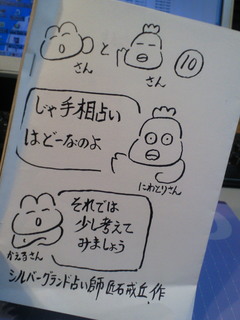 さん
と
さん
10
じゃ手相占い
はどーなのよ
にわとりさん
それでは
少し考えて
みましょう
かえるさん
シルバーグランド占い師 匠石戒丘.作